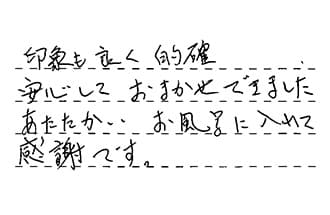 印象も良く 的確
安心して おまかせできました
あたたかい お風呂に入れて
感謝です。